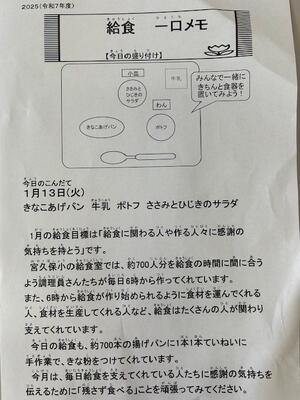 2025(令和7年度)
給食 一口メモ
【今日の盛り付け】
小皿
ささみと
ひじきの
サラダ
牛乳
わん
きなこあげパン
ポトフ
みんなで一緒に
きちんと食器を
置いてみよう!
今日のこんだて
1月13日(火)
きなこあげパン 牛乳 ポトフ ささみとひじきのサラダ
1月の給食目標は「給食に関わる人や作る人々に感謝の
気持ちを持とう」です。
宮久保小の給食室では、約700人分を給食の時間に間に合う
よう調理員さんたちが毎日6時から作ってくれています。
また、6時から給食が作り始められるように食材を運んでくれる
人、食材を生産してくれる人など、給食はたくさんの人が関わり
支えてくれています。
今日の給食も、約700本の揚げパンに1本1本ていねいに
手作業で、きな粉をつけてくれています。
今月は、毎日給食を支えてくれている人たちに感謝の気持ちを
伝えるために「残さず食べる」ことを頑張ってみてください。